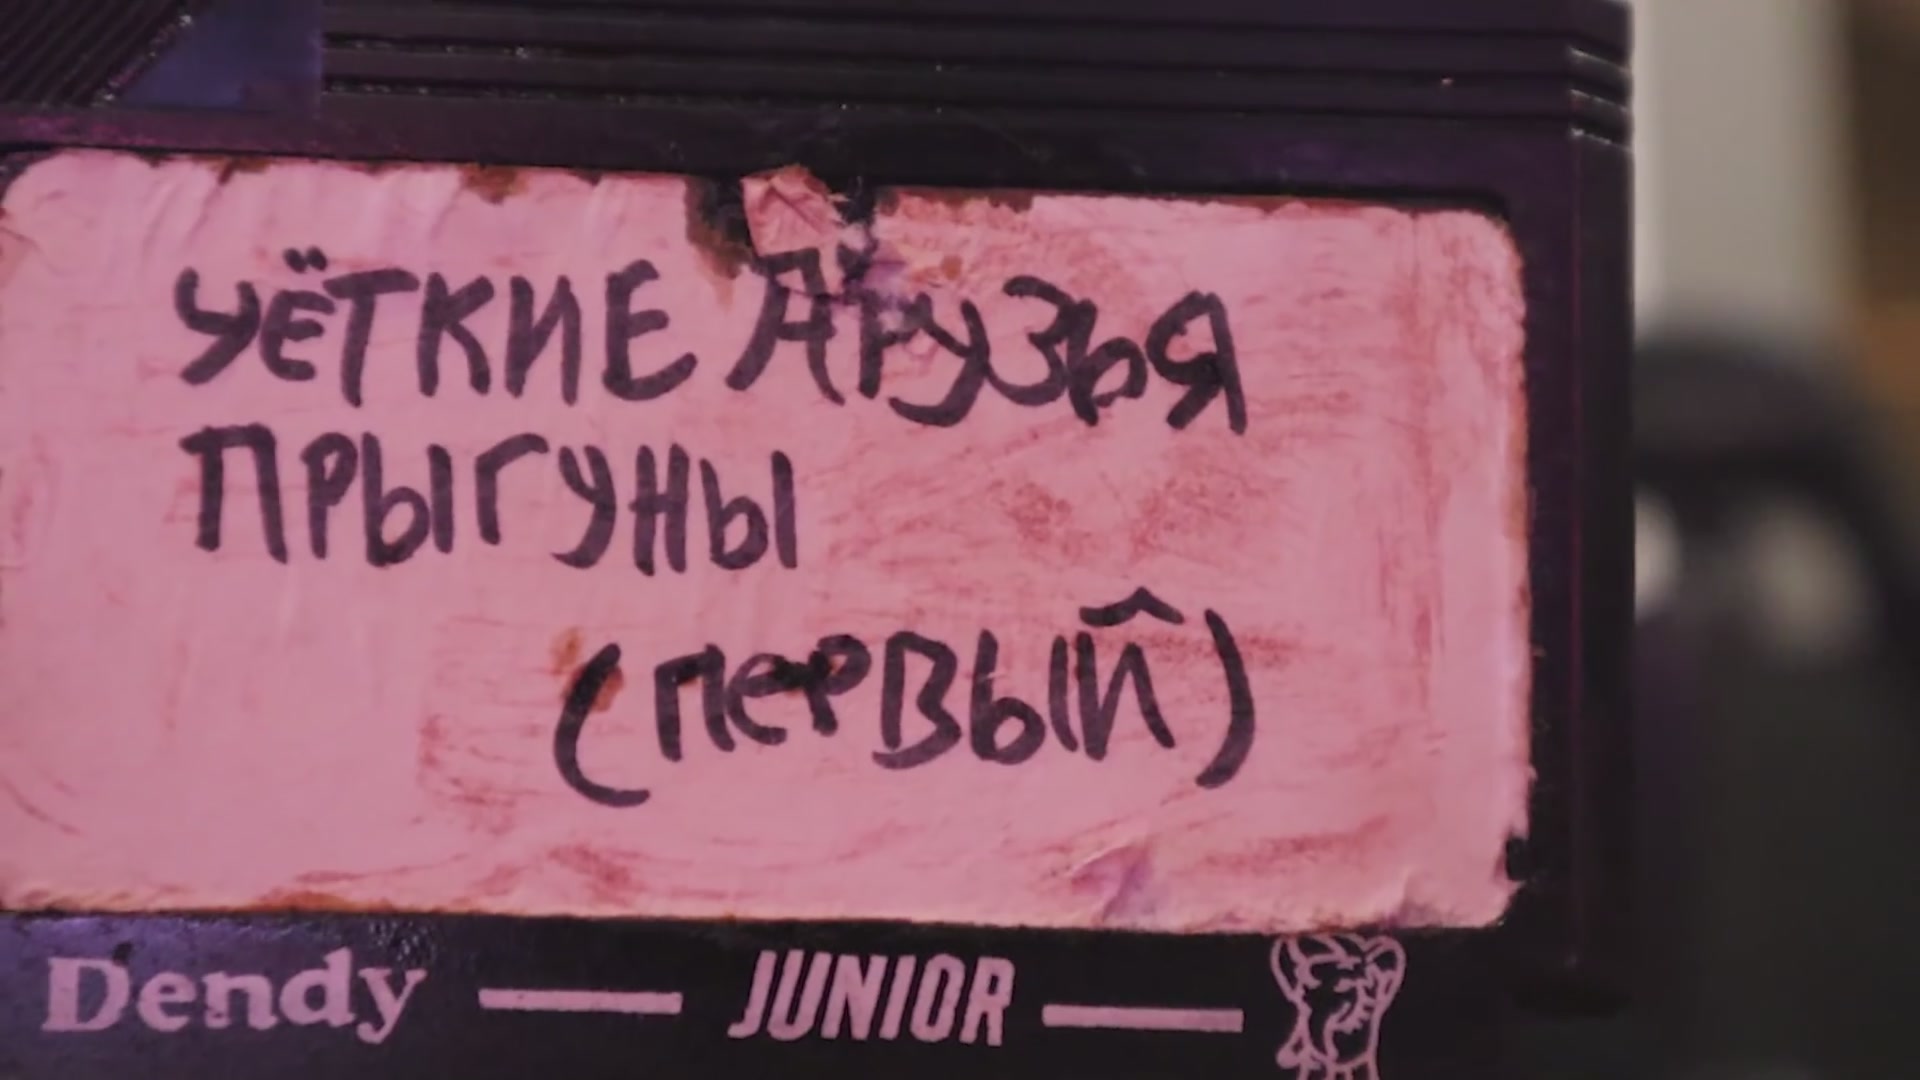 ЧЁТКИЕ ДРУЗЬЯ
ПРЫГУНЫ
(ПеРВЫЙ)
Dendy — JUNIOR —